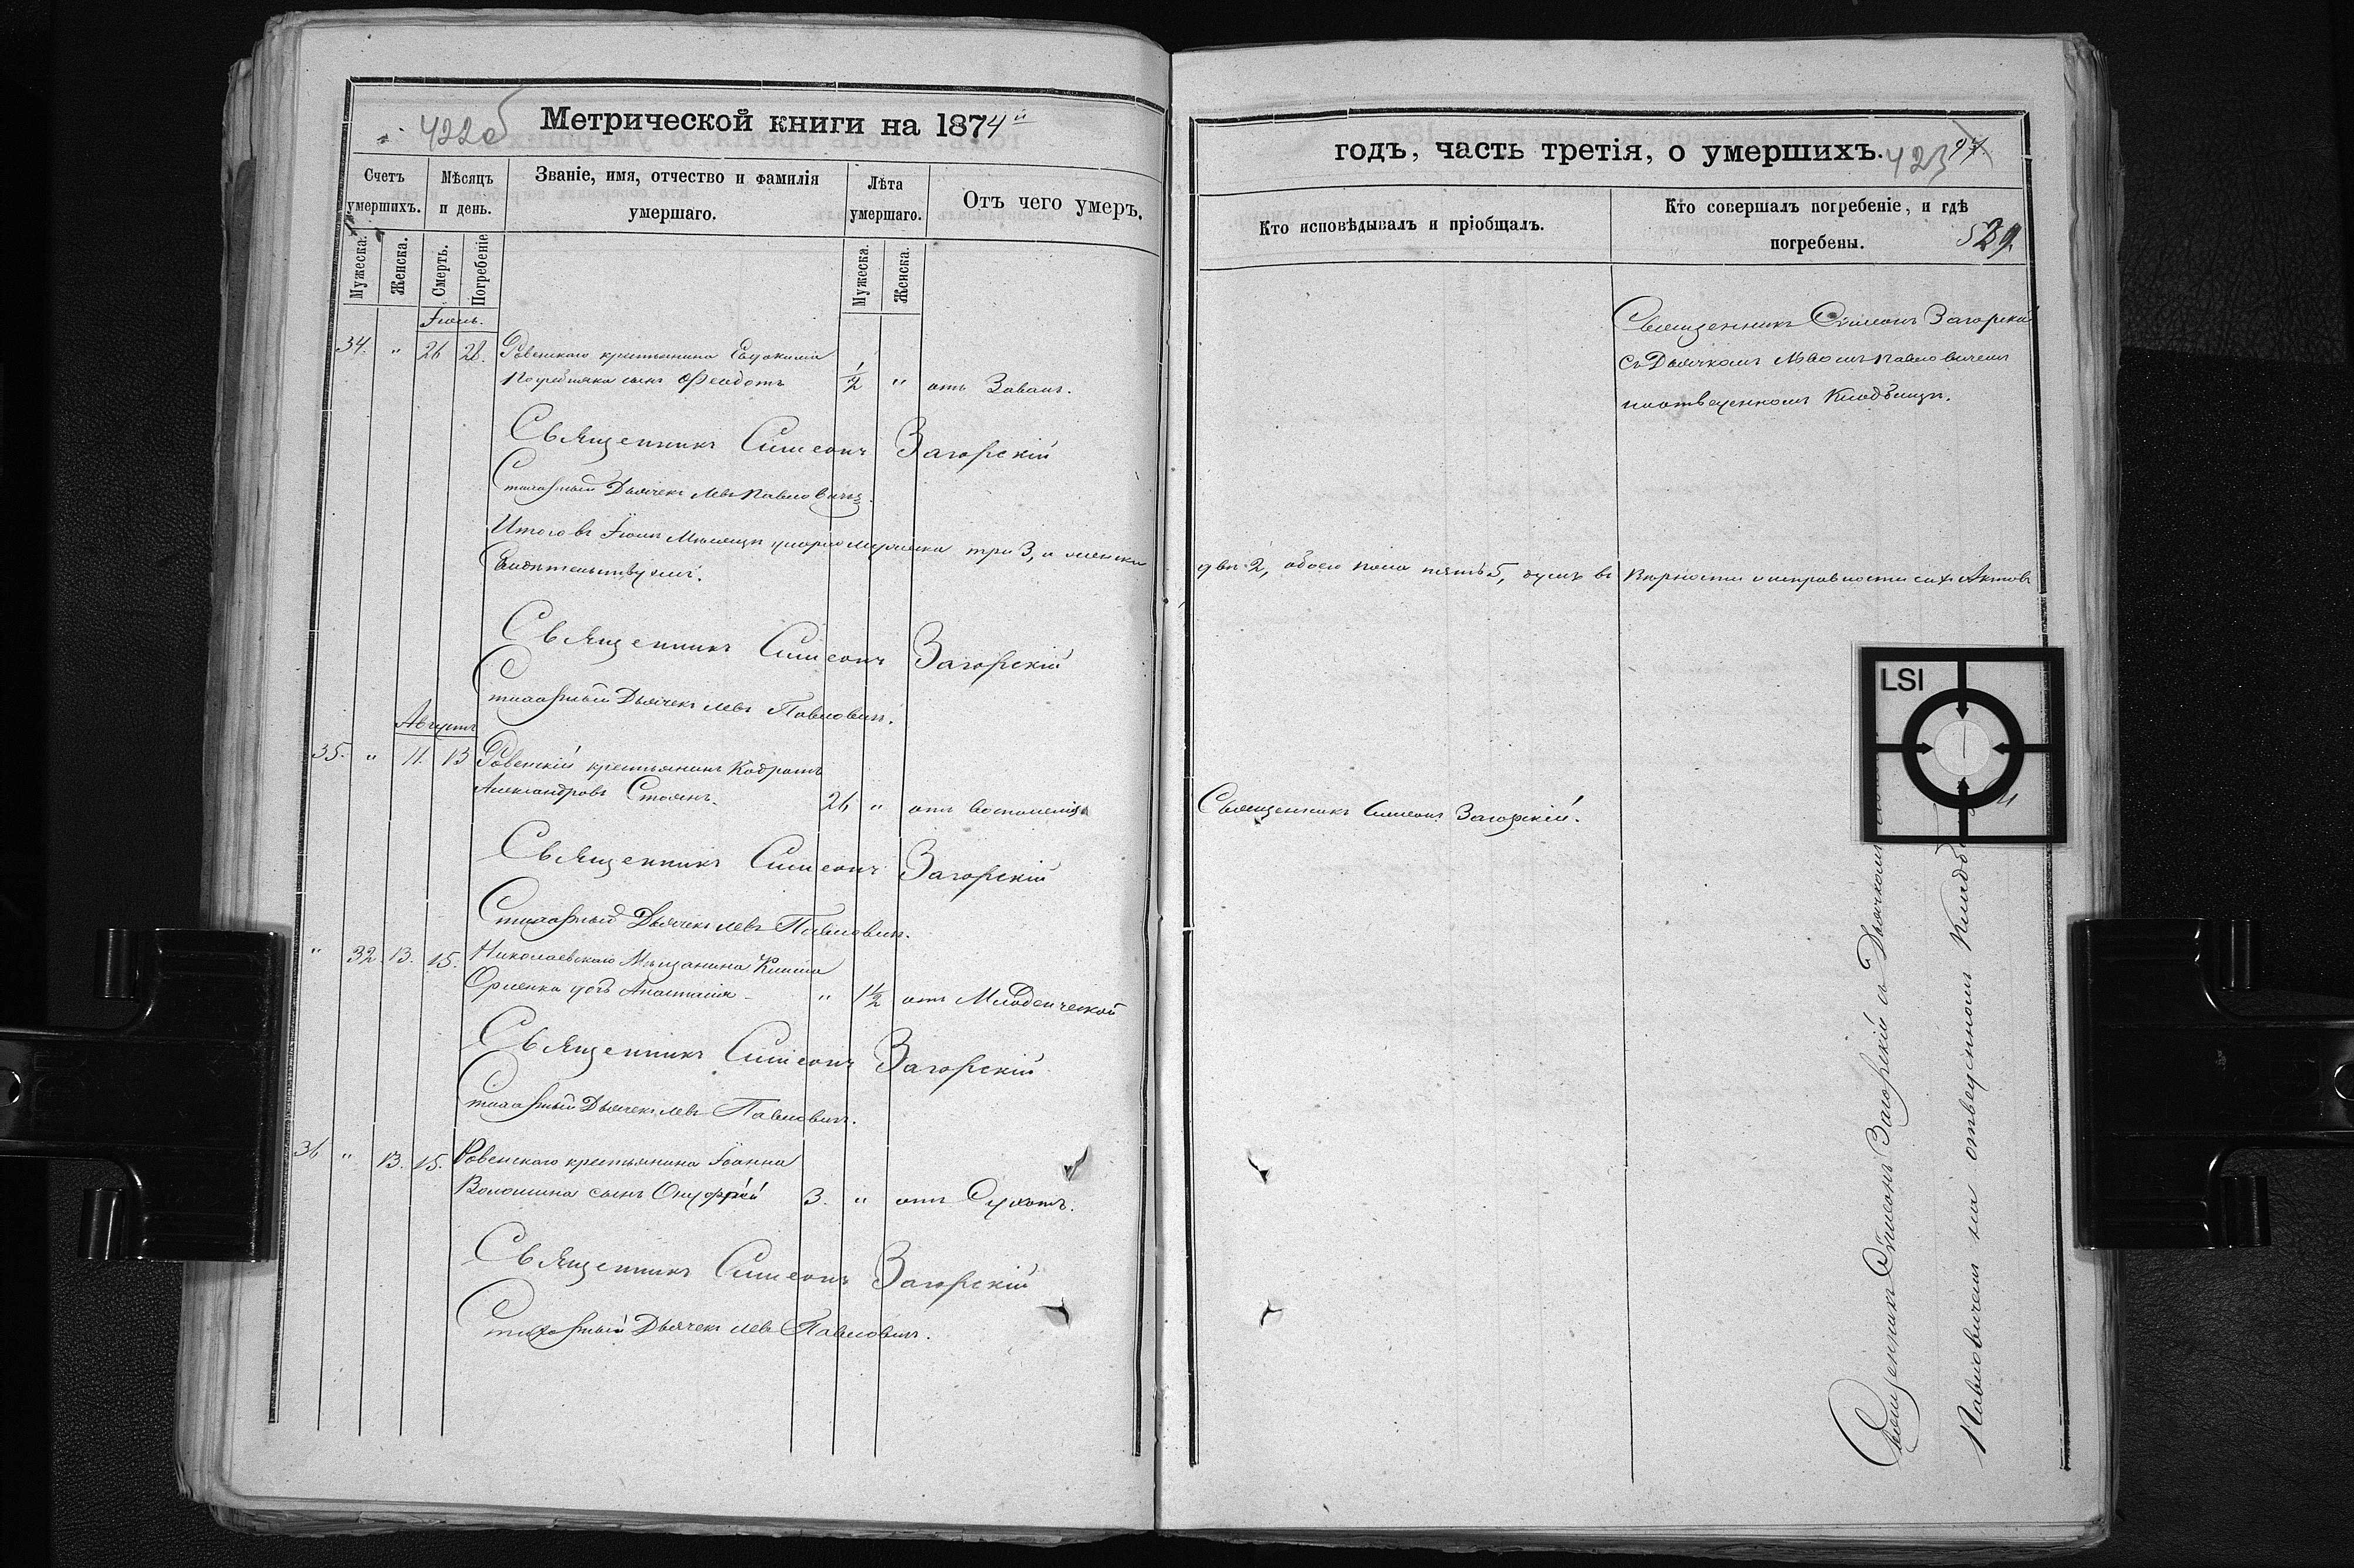 422об
Метрической книги на 1874й
Счетъ умершихъ.
Мѣсяцъ и день.
Званіе, имя, отчество и фамилія умершаго.
Лѣта умершаго.
Отъ чего умеръ.
Мужеска.
Женска.
Смерть.
Погребеніе
Мужеска.
Женска.
Іюль.
34. " 26 28. Ровенскаго крестьянина Евдокима
сынъ Феодотъ 1/2 " отъ
Священникъ Симеонъ Загорскій
Стихарный Дьячекъ Левъ Павловичъ.
Итого въ Іюлѣ Мѣсяцѣ умерло мужеска три 3, а женска
Свидѣтельствуемъ.
Священникъ Симеонъ Загорскій
Стихарный Дьячекъ Левъ Павловичъ.
Августъ
35. " 11. 13 Ровенскій крестьянинъ Кодратъ
Александровъ Стоянъ. 26 " отъ воспаленія
Священникъ Симеонъ Загорскій
Стихарный Дьячекъ Левъ Павловичъ.
" 32 13. 15. Николаевскаго Мѣщанина
дочь Анастасія " 1 1/2 отъ Младенческой
Священникъ Симеонъ Загорскій
Стихарный Дьячекъ Левъ Павловичъ.
36 " 13. 15. Ровенскаго крестьянина Іоанна
Волошина сынъ Онуфрій 3. " отъ Сухотъ.
Священникъ Симеонъ Загорскій
Стихарный Дьячекъ Левъ Павловичъ.
годъ, часть третія, о умершихъ.
423
Кто исповѣдывалъ и пріобщалъ.
Кто совершалъ погребеніе, и гдѣ погребены.
529
Священникъ Симеонъ Загорскій
съ Дьячкомъ Львомъ Павловичемъ
на отведенномъ Кладбищѣ.
двѣ 2, обоего пола пять 5, въ вѣрности и исправности сихъ Актовъ
LSI
Священникъ Симеонъ Загорскій.
Священникъ Симеонъ Загорскій съ Дьячкомъ
Павловичемъ на отведенномъ